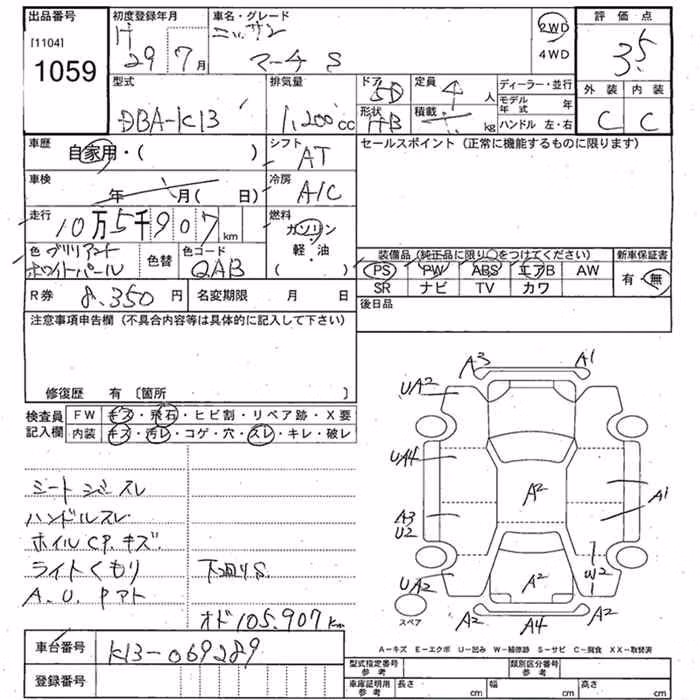 出品番号
[1104]
1059
初度登録年月
H 29年 7月
車名・グレード
ニッサン
マーチ S
2WD
4WD
評価点
3.5
外装 内装
C C
型式
DBA-K13
排気量
1,200cc
ドア 5D
形状 HB
定員 人
積載 kg
ディーラー・並行
モデル年式 年
ハンドル 左・右
車歴
自家用・( )
シフト
AT
車検
年 月( 日)
冷房
A/C
走行
10万5千907km
燃料
ガソリン
軽・油
( )
色 ブリリアント
ホワイトパール
色替
色コード
QAB
R券 8,350円
名変期限 月 日
セールスポイント (正常に機能するものに限ります)
装備品 (純正品に限り○をつけてください)
PS PW ABS エアB AW
SR ナビ TV カワ
新車保証書
有・無
後日品
注意事項申告欄 (不具合内容等は具体的に記入して下さい)
修復歴 有 [箇所 ]
検査員
記入欄
FW キズ・飛石・ヒビ割・リペア跡・X要
内装 キズ・汚レ・コゲ・穴・スレ・キレ・破レ
シートシミ・スレ
ハンドルスレ
ホイルCP.キズ
ライトくもり
A.U.Pマト
下廻りS
オド105,907km
A3 A1
UA2
UA4
A2
A1
A3
U2
W2
UA2
A2
A2 A4 A2
スペア
A-キズ E-エクボ U-凹み W-補修跡 S-サビ C-腐食 XX-取替済
車台番号
K13-069289
登録番号
型式指定番号
参考
類別区分番号
参考
車庫証明用
参考
長さ cm
幅 cm
高さ cm